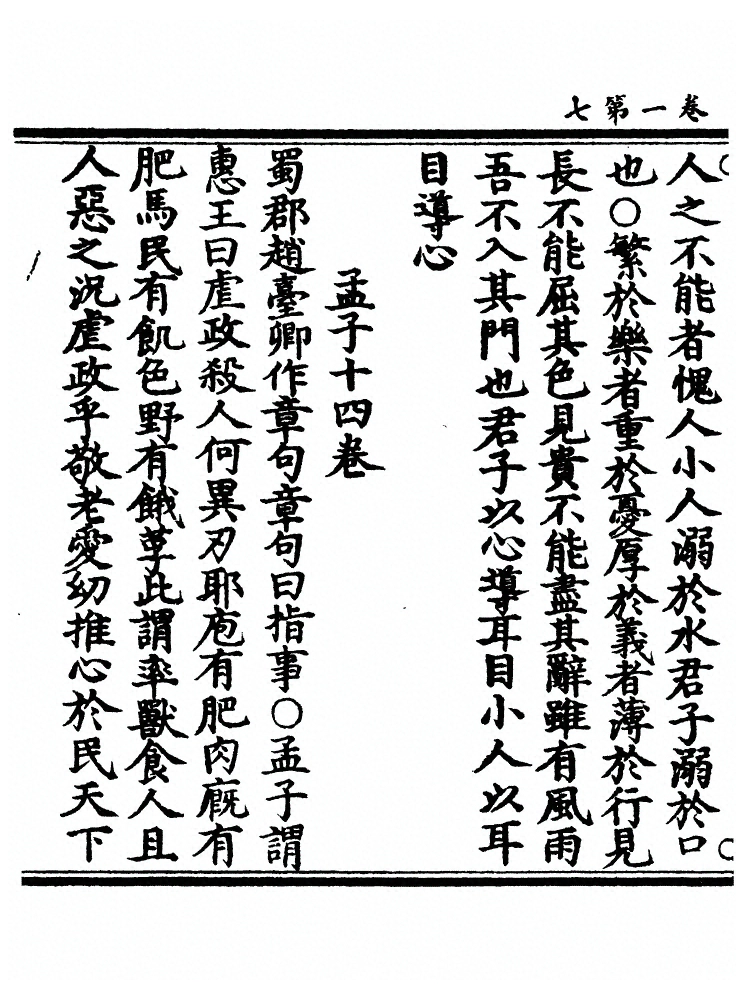 卷一第七
人之不能者愧人小人溺於水君子溺於口
也○繁於樂者重於憂厚於義者薄於行見
長不能屈其色見貴不能盡其辭雖有風雨
吾不入其門也君子以心導耳目小人以耳
目導心
孟子十四卷
蜀郡趙臺卿作章句章句曰指事○孟子謂
惠王曰虐政殺人何異刃耶庖有肥肉廐有
肥馬民有飢色野有餓莩此謂率獸食人且
人惡之況虐政乎敬老愛幼推心於民天下